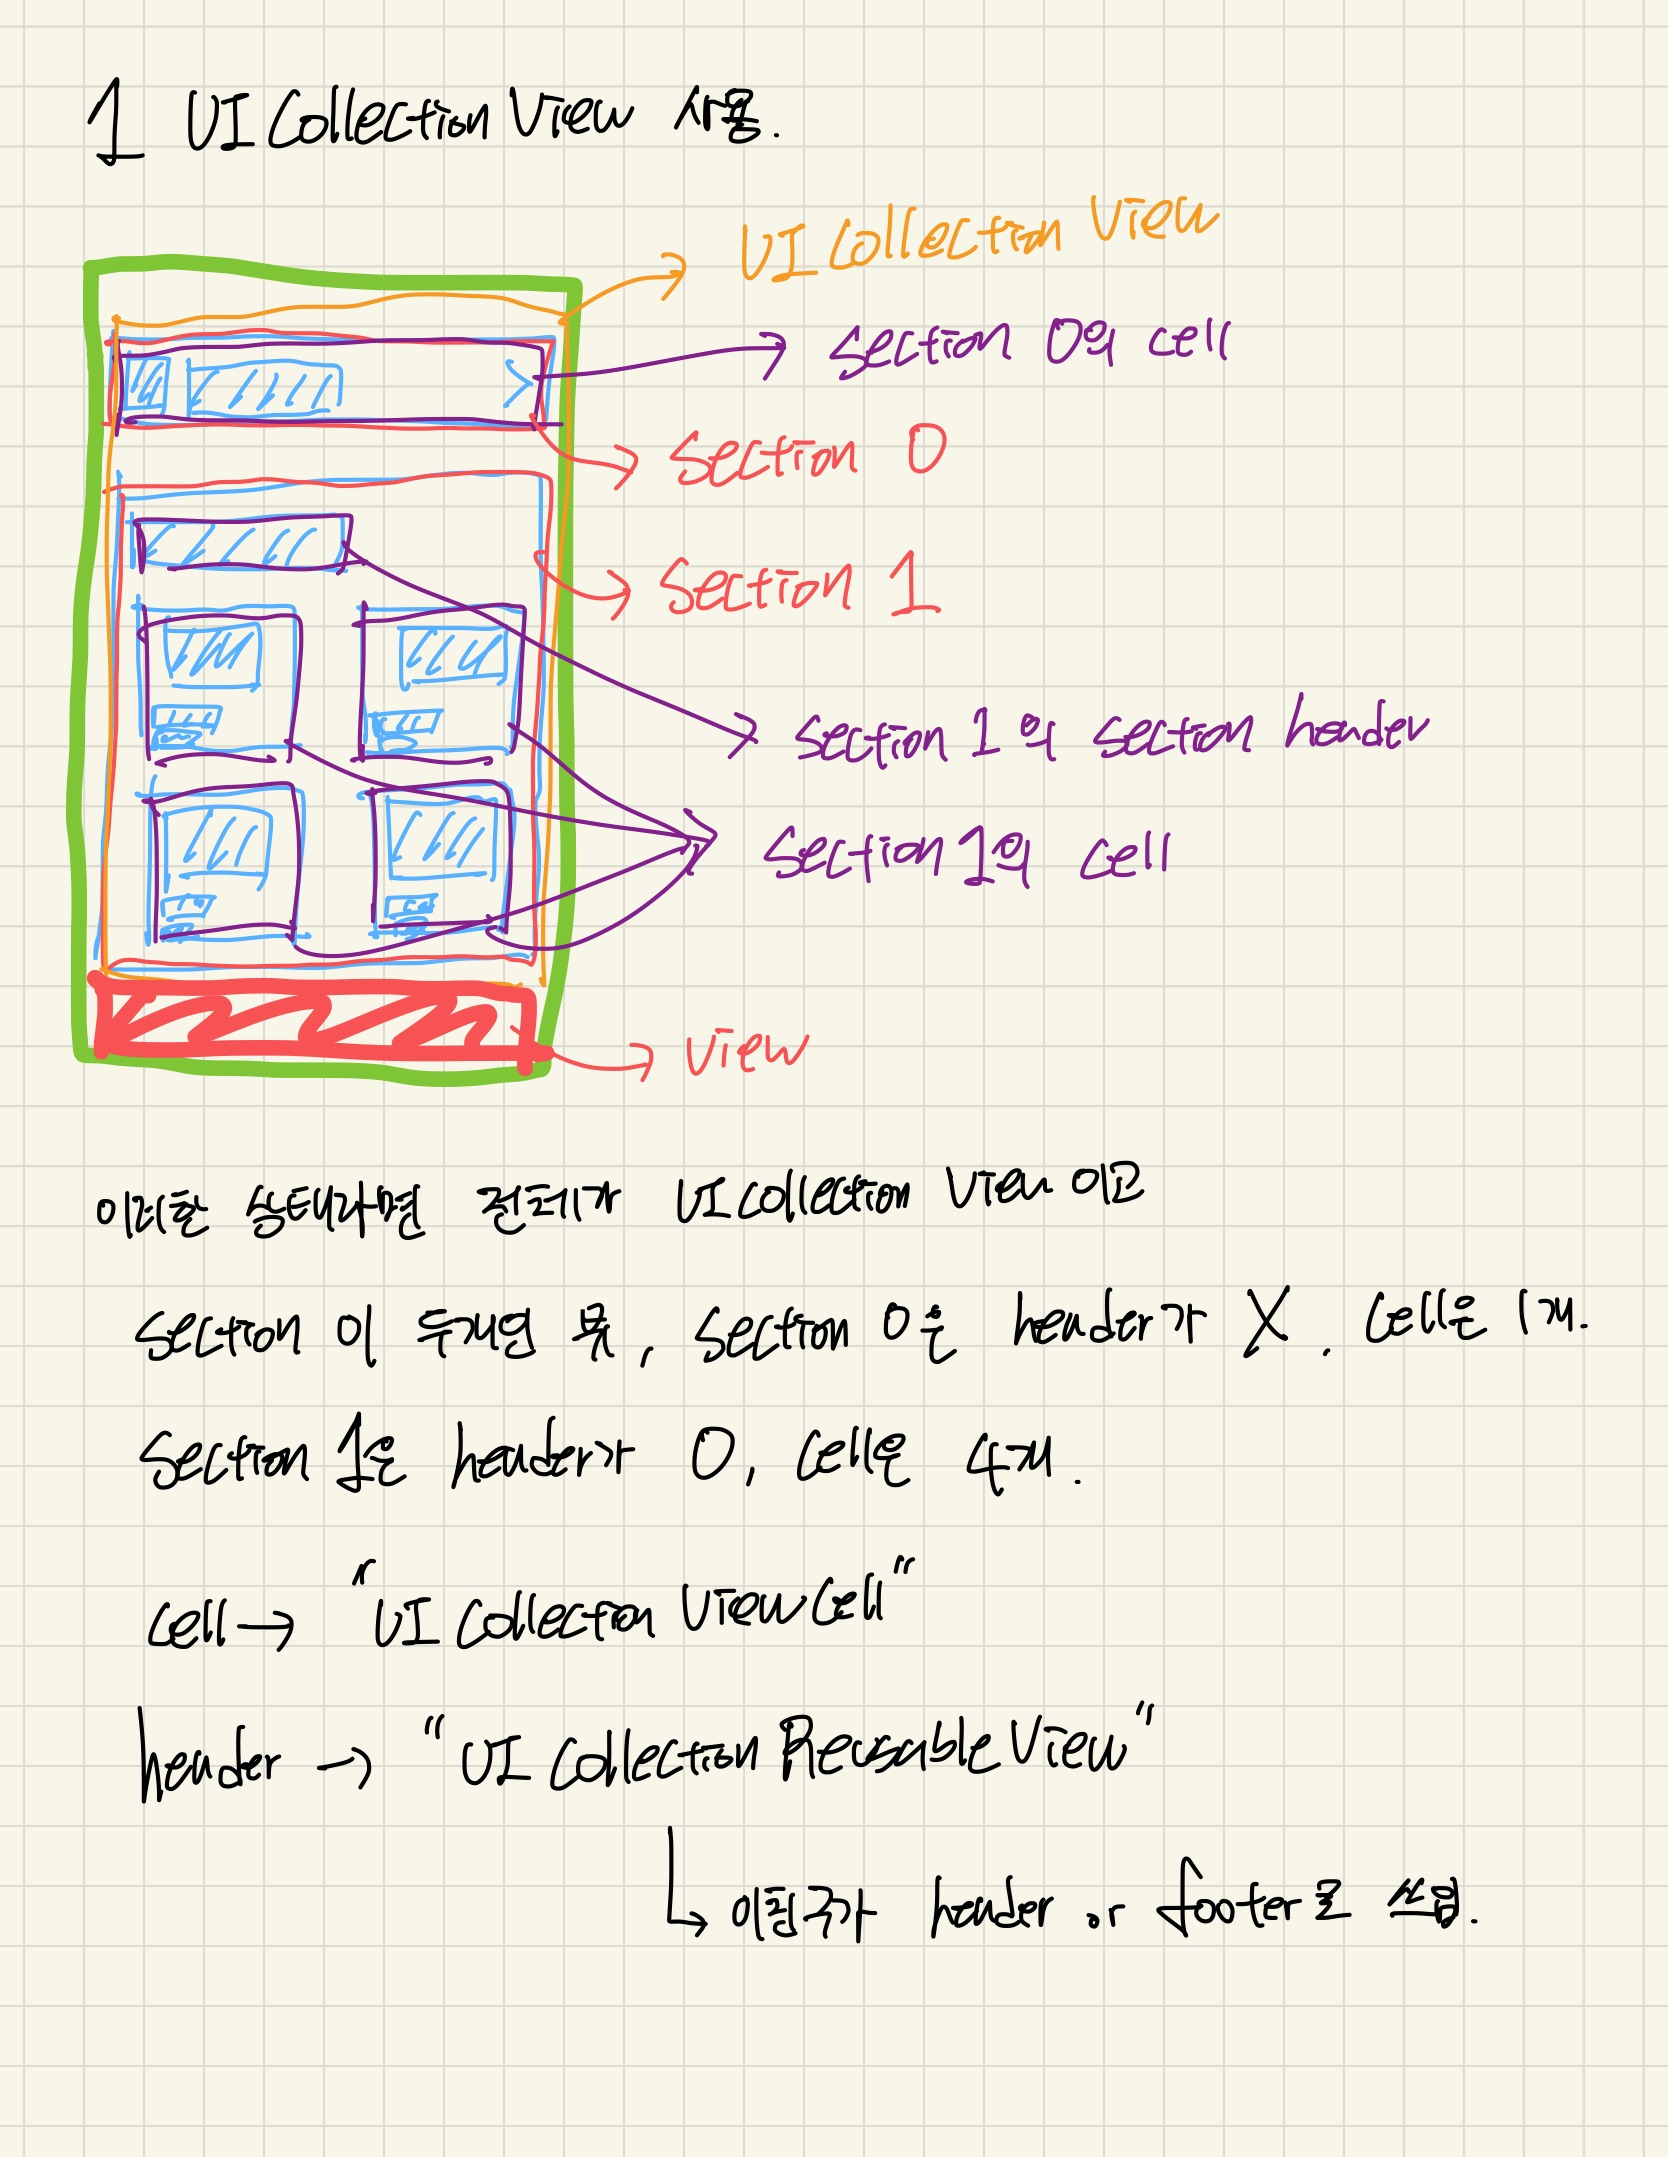 1 UICollectionView 사용.
UICollectionView
section 0의 cell
section 0
section 1
section 1의 section header
section 1의 cell
view
이러한 상태라면 전체가 UICollectionView 이고
section 이 두개인 뷰, section 0은 header가 X. cell은 1개.
section 1은 header가 O, cell은 4개.
cell → "UICollectionViewCell"
header → "UICollectionReusableView"
↳ 이친구가 header or footer로 쓰임.